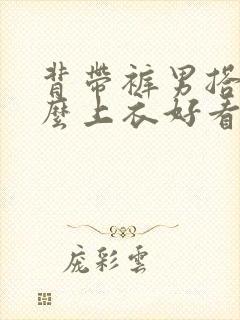 背帶裤男搭
麼上衣好看
庞彩雲